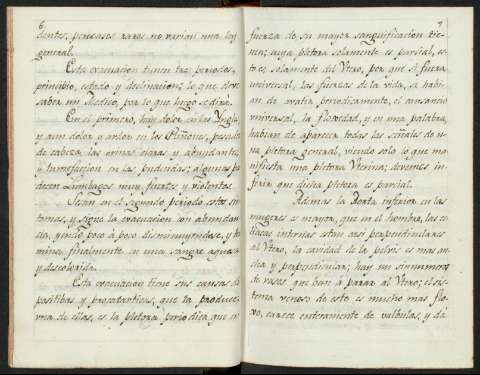 6.
dentes, pero casos raros no varian una ley
general.
Esta evacuacion tienen tres periodos,
principio, estado y declinacion; lo que deve
saber un Medico, por lo que luego se dirá.
En el primero, hay dolor en las Yngles,
y aun dolor y ardor en los Riñones, pesadez
de cabeza las orinas claras y abundantes,
y tumefaccion en las pudendas; algunas pa
decen Lumbagos muy fuertes y violentos.
Cesan en el segundo periodo estos sin
tomas, y sigue la evacuacion con abundan
cia, yendo poco á poco disminuyendose, y ter
mina finalmente en una sangre aguosa
y descolorida.
Esta evacuacion tiene sus causas dis
positibas y procatarticas, que la produce;
una de ellas, es la pletora periodica que en
7
fuerza de su mayor sanguificacion tie-
nen; cuya pletora solamente es parcial, es-
to es, solamente del Utero, por que si fuera
universal, las fuerzas de la vida, se habi-
an de avatir periodicamente, el cansancio
universal, la flojedad, y en una palabra,
habian de aparecer todas las señales de u-
na pletora general, viendo solo lo que ma
nifiesta una pletora Uterina; devemos in-
ferir que dicha pletora es parcial.
Ademas la Aorta inferior en las
mugeres es mayor, que en el hombre, las es-
liacas internas estan casi perpendiculares
al Utero, la cavidad de la pelvis es mas an
cha y perpendicular; hay un sinnumero
de vasos que ban á parar al Utero; el sis-
tema venoso de este es mucho mas flo-
xo, carece enteramente de valbulas, y dá